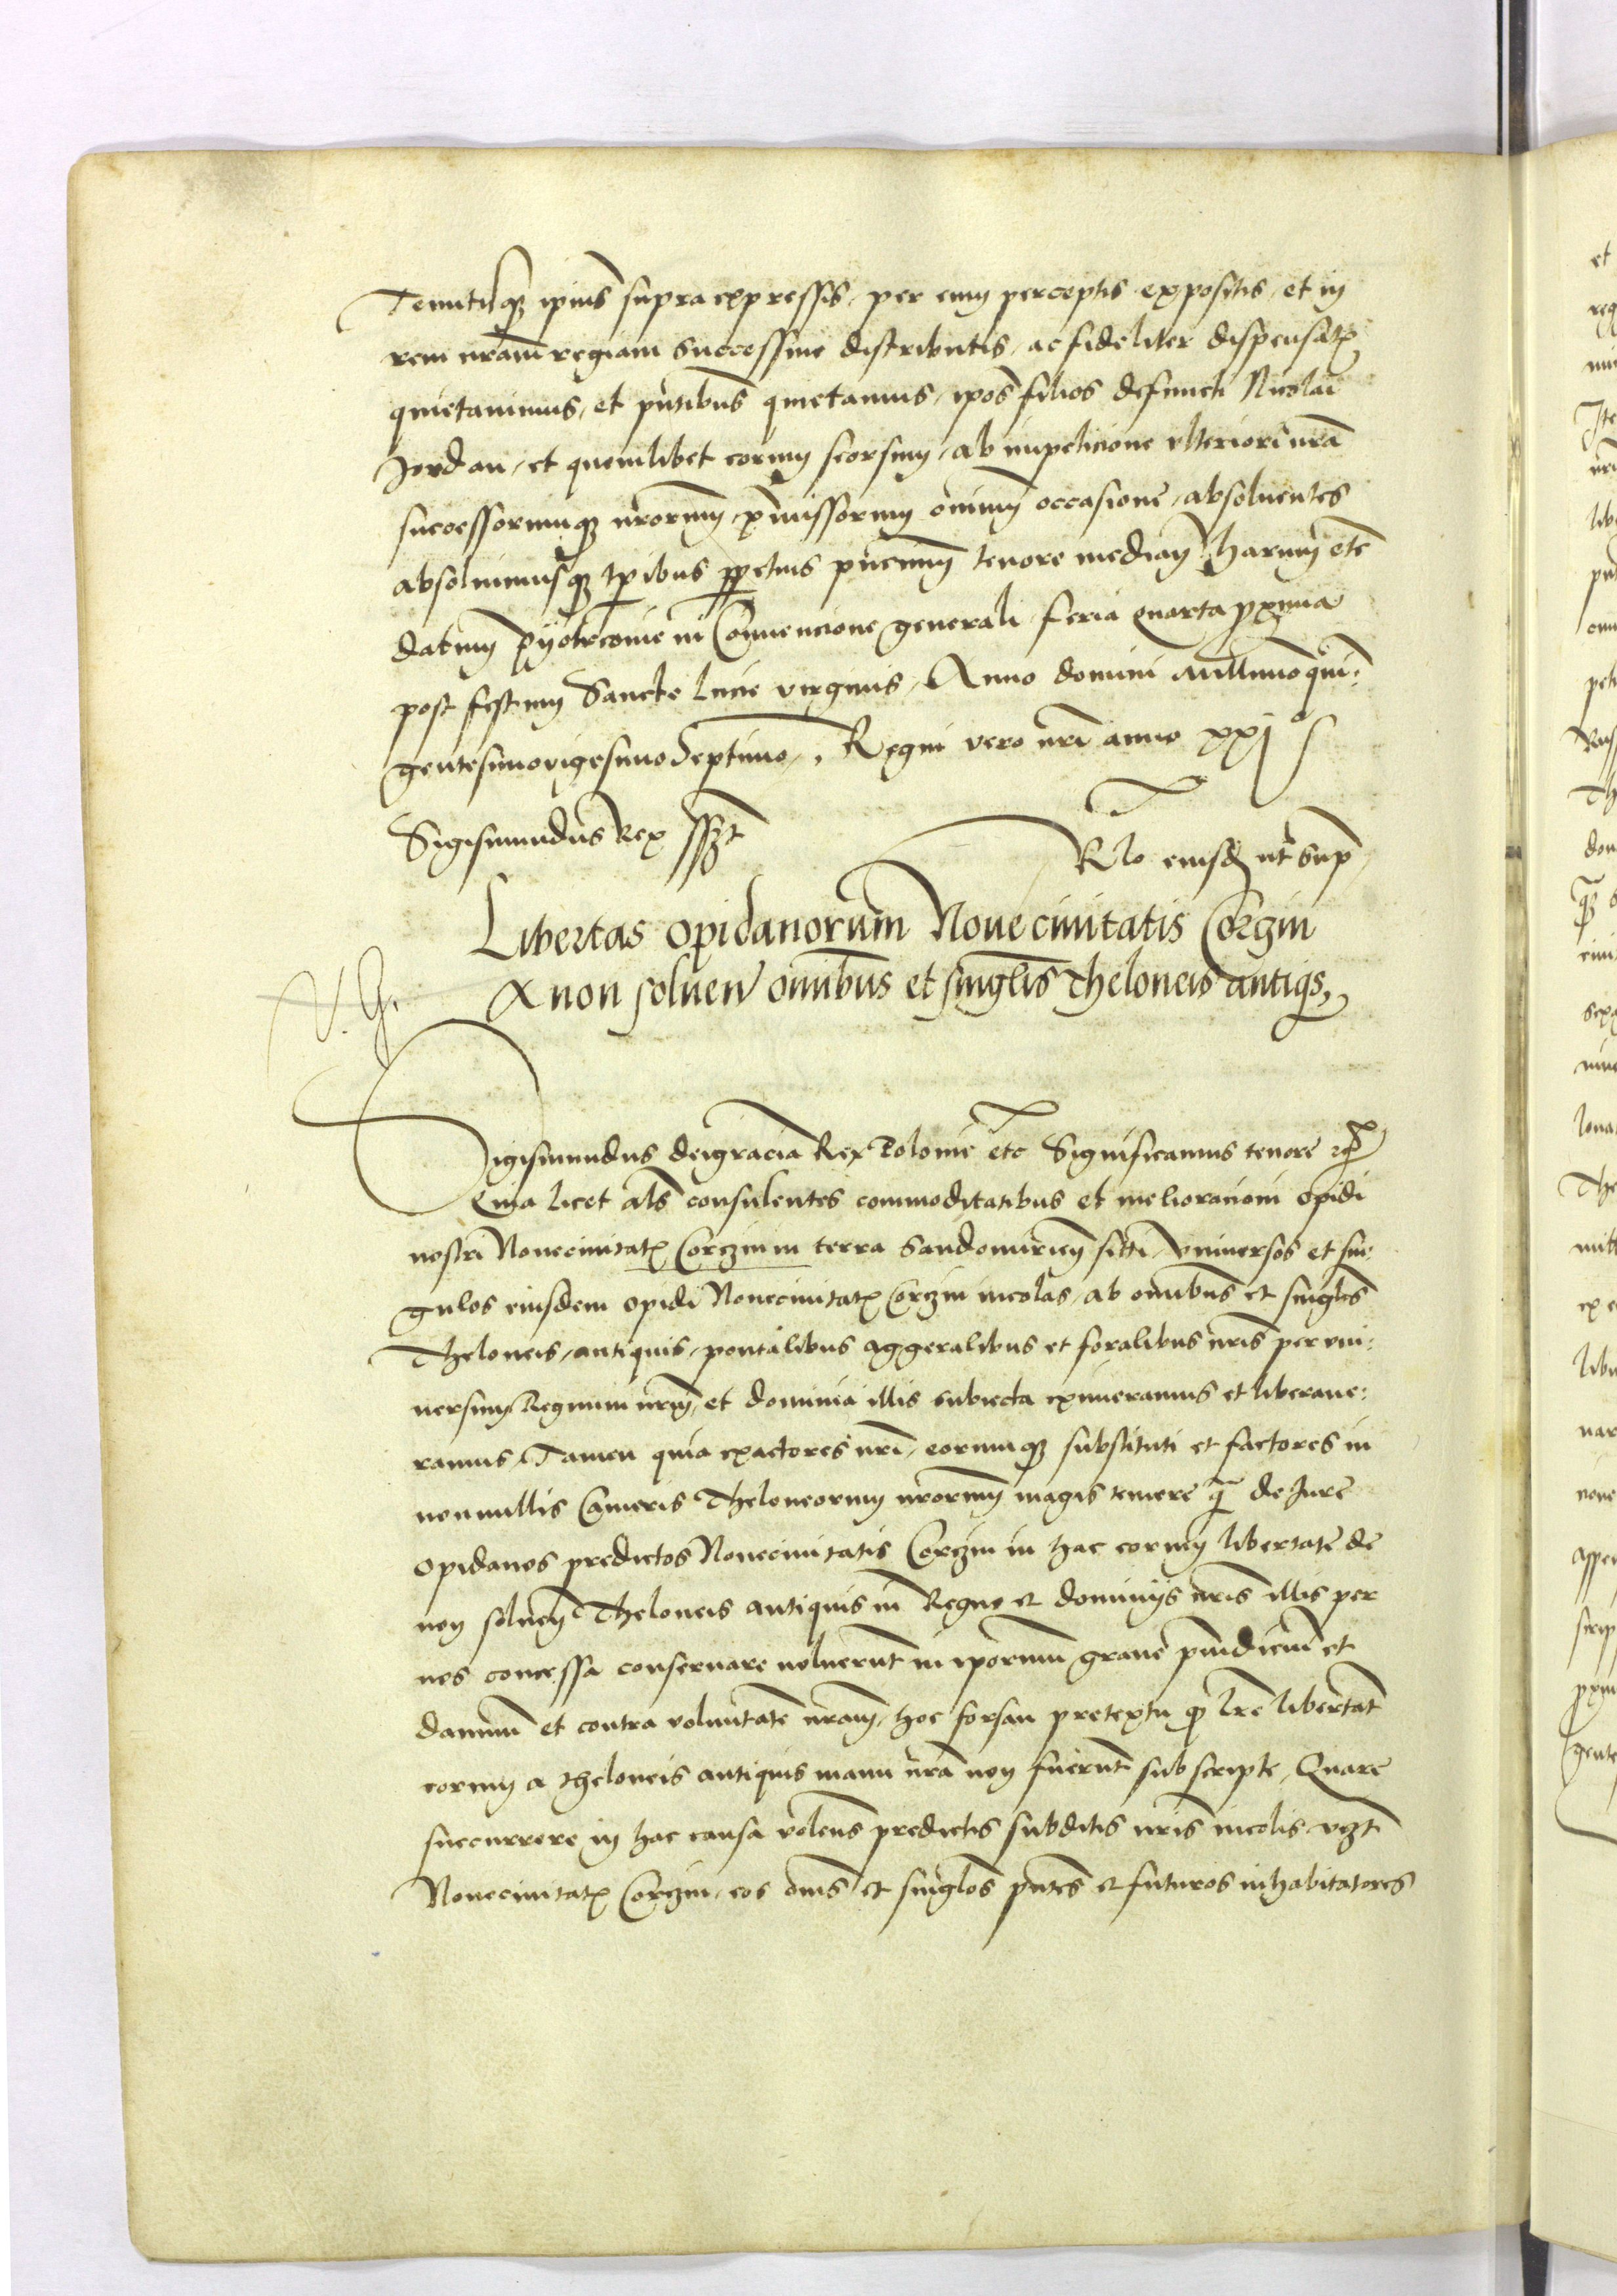 Tenutisque ipius supra expressis, per eum perceptis expositis, et in
rem nram regiam successiue distributis, ac fideliter dispensatis
quietauimus, et pntibus quietamus, ipos filios defuncti Nicolai
Jordan, et quemlibet eorum seorsum, ab impeticione vlteriori nra
successorumque nrorum, pmissorum omnium occasione, absoluentes
absoluimusque tpibus ppetuis pncium tenore mediam Harum etc
datum Pyotrcouie in Conuencione generali feria quarta pxima
post festum Sancte Lucie virginis, Anno domini Millimo quin:
gentesimo vigesimo Septimo, Regni vero nri anno xxi°
Sigismundus Rex sszt
Rlo eiusd ut sup
Libertas opidanorum Noue ciuitatis Corzin
A non soluen omibus et singlis Theloneis antiqs
V. G.
Sigismundus dei gracia Rex Polonie etc Significamus tenore
Quia licet als consulentes commoditatibus et melioracioni opidi
nostri Noueciuitatis Corczin in terra Sandomirien siti, Vniuersos et sin:
gulos eiusdem opidi Noueciuitatis Corczin incolas, ab omibus et singlis
Theloneis, antiquis, pontalibus aggeralibus et foralibus nris per vni:
uersum Regnum nrm, et dominia illis subiecta eximeramus et liberaue:
ramus, Tamen quia exactores nri, eorumque substituti et factores in
nonnullis Cameris Theloneorum nrorum magis temere q de Jure
opidanos predictos Noueciuitatis Corczin in hac eorum libertate de
non soluen Theloneis antiquis in Regno et dominijs nris illis per
nos concessa conseruare noluerunt in iporum graue preiudicium et
damnum et contra voluntate nram, hoc forsan pretextu q lre libertat
eorum a theloneis antiquis manu nra non fuerunt subscripte, Quare
succurrere in hac causa volens predictis subditis nris incolis vzt
Noueciuitatis Corczin, eos oms et singlos pntes et futuros inhabitatores